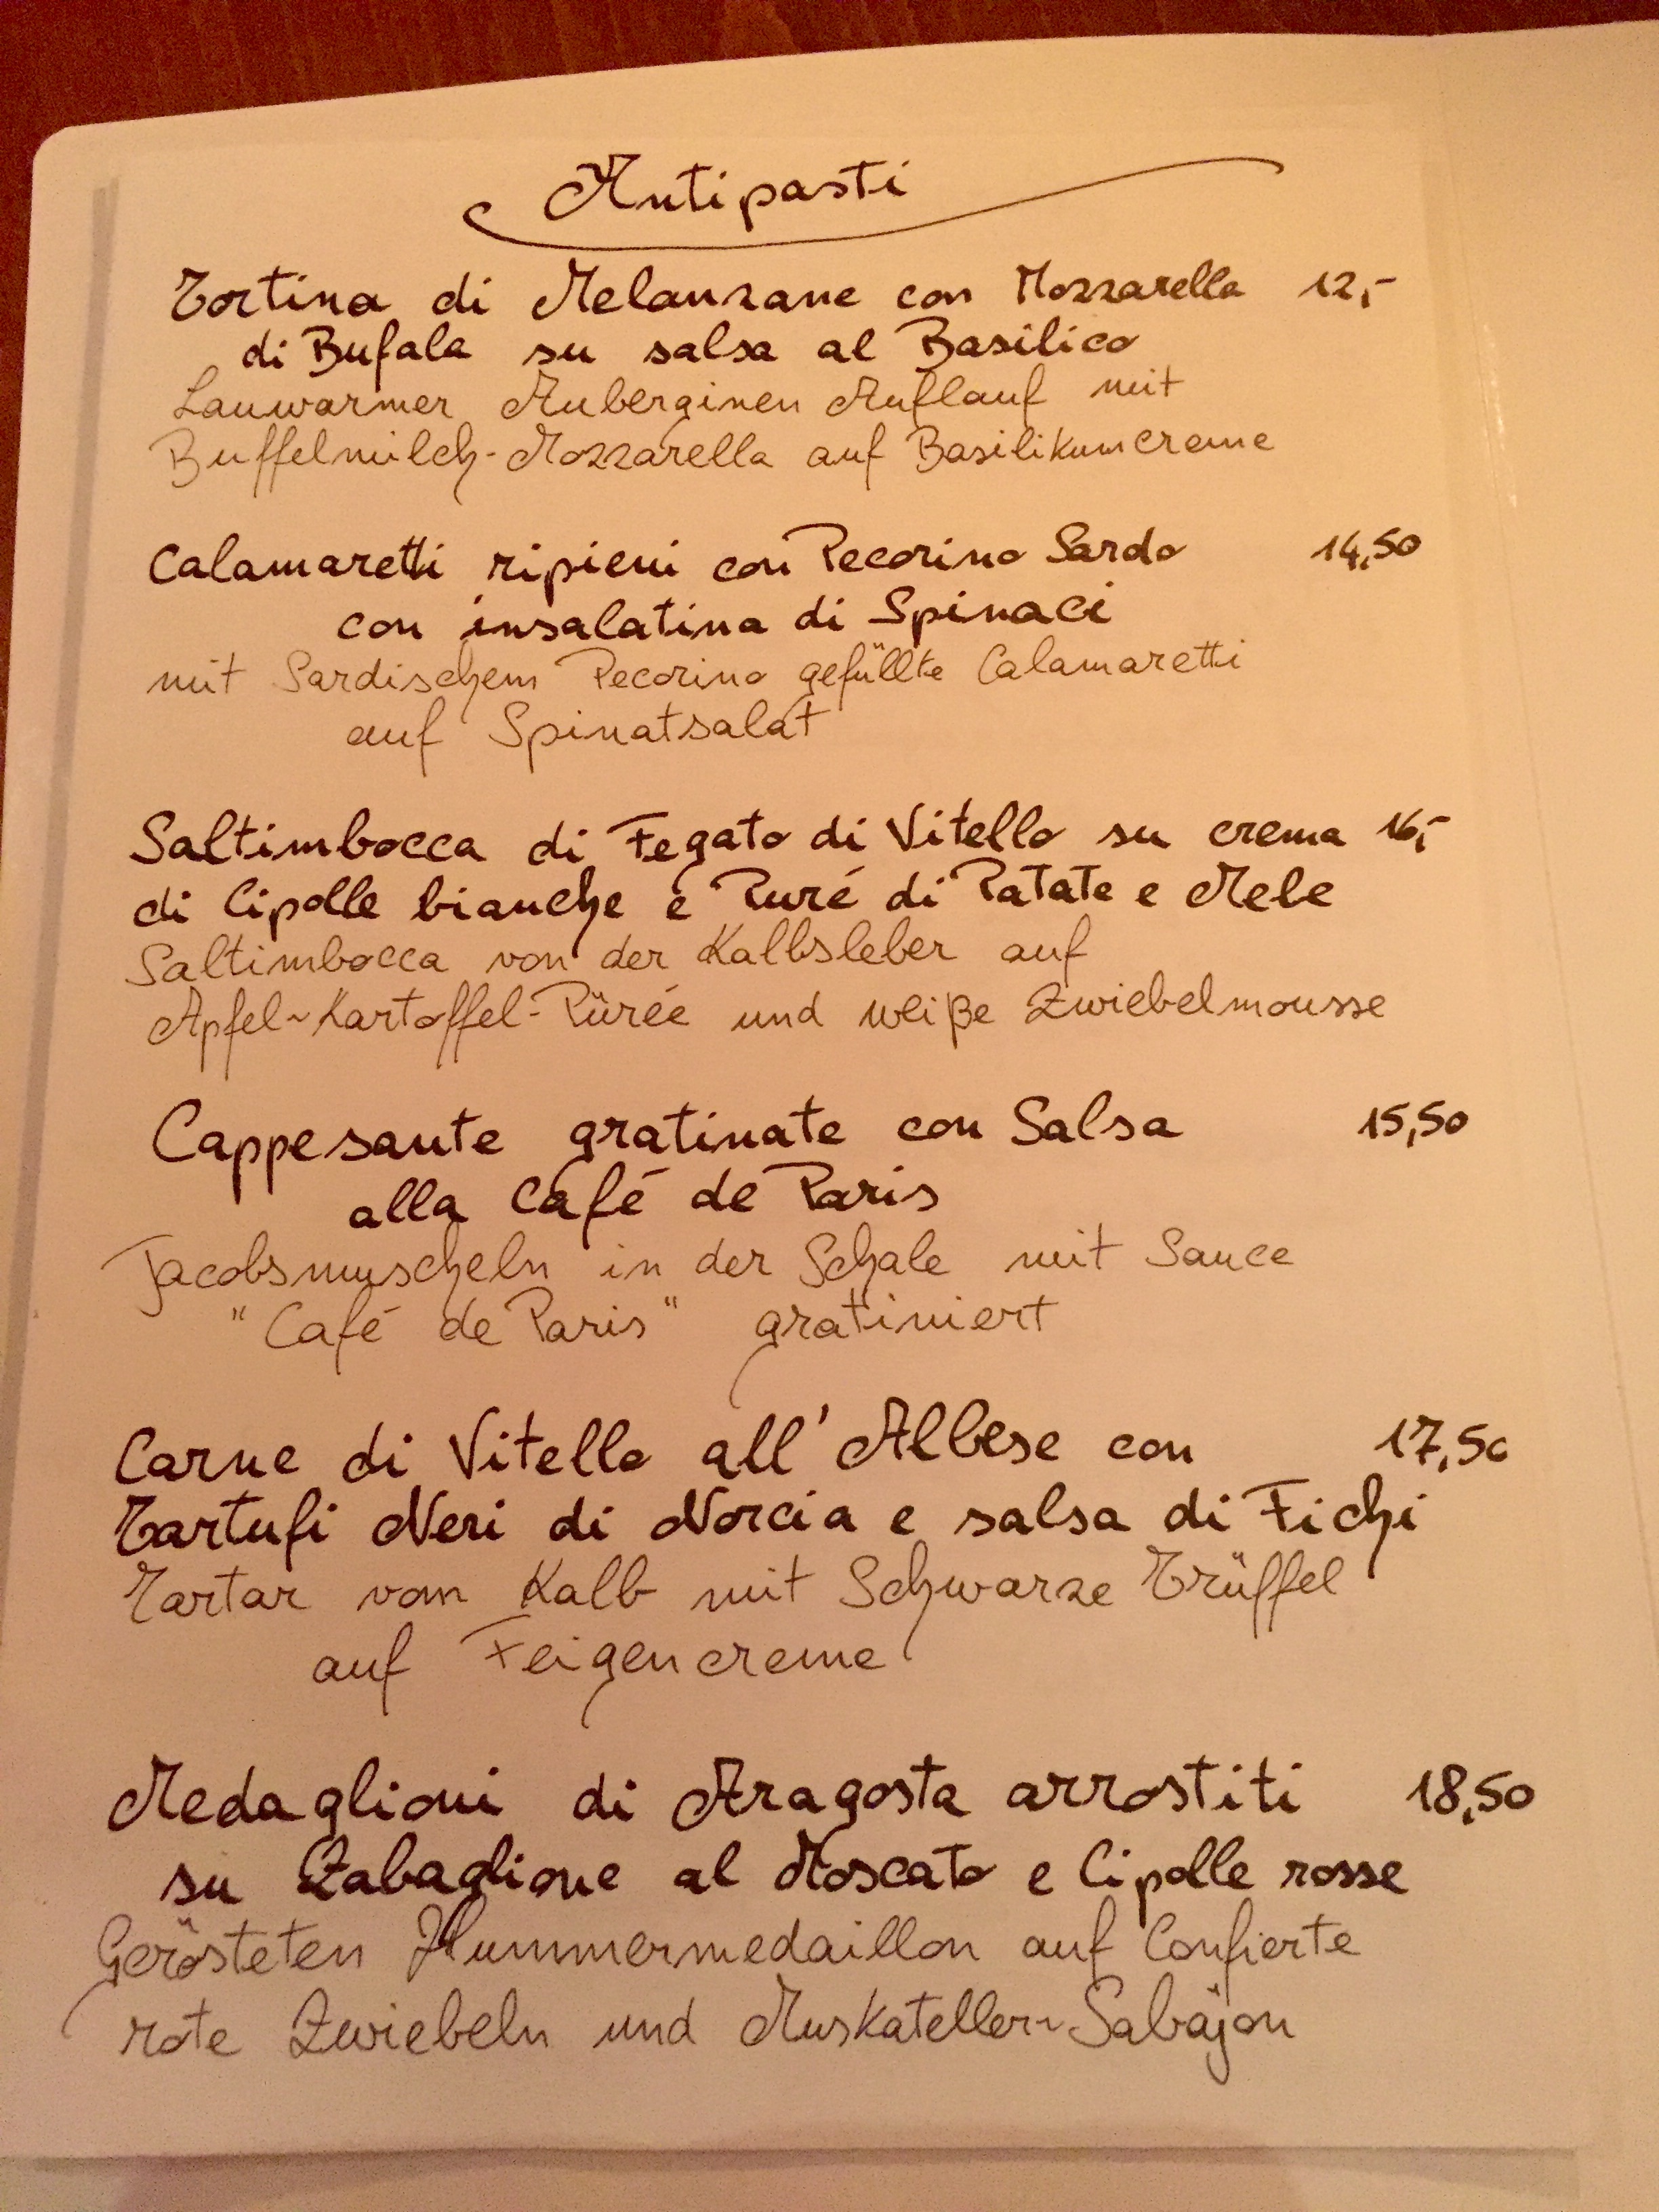 Antipasti
Tortina di Melanzane con Mozzarella 12,-
di Bufala su salsa al Basilico
Lauwarmer Auberginen Auflauf mit
Buffelmilch-Mozzarella auf Basilikumcreme
Calamaretti ripieni con Pecorino Sardo 14,50
con insalatina di Spinaci
mit Sardischem Pecorino gefüllte Calamaretti
auf Spinatsalat
Saltimbocca di Fegato di Vitello su crema 16,-
di Cipolle bianche e Puré di Patate e Mele
Saltimbocca von der Kalbsleber auf
Apfel-Kartoffel-Pürée und weiße Zwiebelmousse
Cappesante gratinate con Salsa 15,50
alla Café de Paris
Jacobsmuscheln in der Schale mit Sauce
"Café de Paris" gratiniert
Carne di Vitello all'Albese con 17,50
Tartufi Neri di Norcia e salsa di Fichi
Tartar vom Kalb mit Schwarze Trüffel
auf Feigencreme
Medaglioni di Aragosta arrostiti 18,50
su Zabaglione al Moscato e Cipolle rosse
Gerösteten Hummermedaillon auf Confierte
rote Zwiebeln und Muskateller-Sabajon